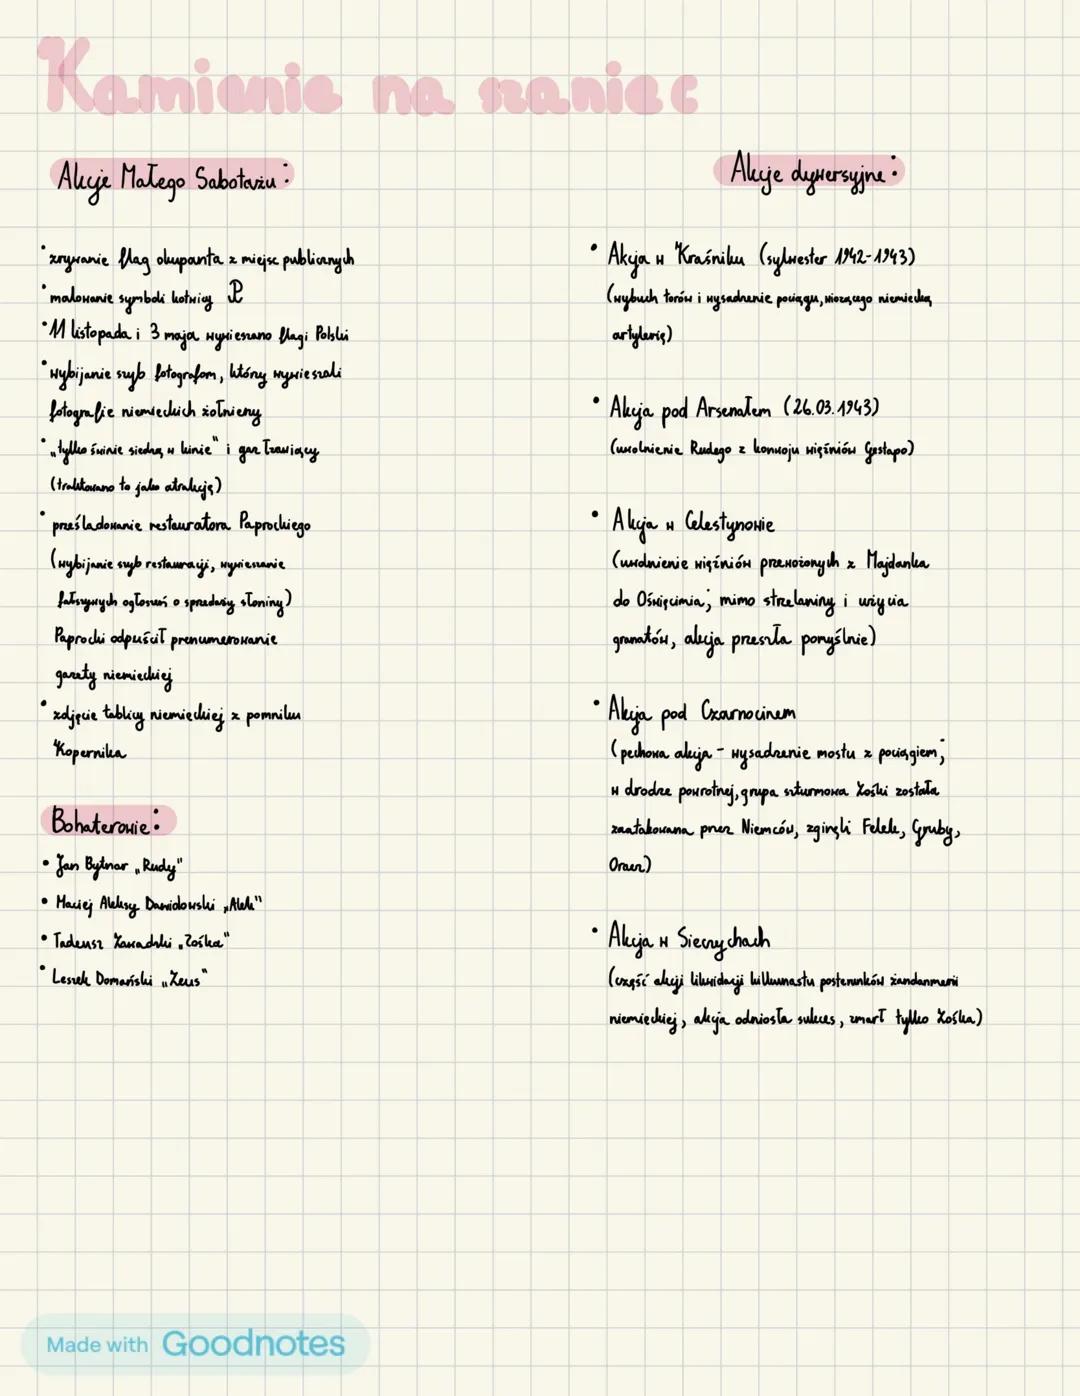 Kamienie na szaniec
Akcje Małego Sabotażu:
• zrywanie flag okupanta z miejsc publicznych
• malowanie symboli kotwicy
• 11 listopada i 3 maja wywieszano flagi Polski
• wybijanie szyb fotografom, którzy wywieszali
fotografie niemieckich żołnierzy
• „tylko świnie siedzą w kinie" i gaz łzawiący
(traktowano to jako atrakcję)
• prześladowanie restauratora Paprockiego
(wybijanie szyb restauracji, wywieszanie
fałszywych ogłoszeń o sprzedaży słoniny)
Paprocki odpuścił prenumerowanie
gazety niemieckiej
• zdjęcie tablicy niemieckiej z pomniku
Kopernika
Bohaterowie:
• Jan Bytnar „Rudy"
• Maciej Aleksy Dawidowski „Alek"
• Tadeusz Zawadzki „Zośka"
• Leszek Domański „Zeus"
Akcje dywersyjne:
• Akcja w Kraśniku (sylwester 1942-1943)
(wybuch torów i wysadzenie pociągu, wiozącego niemiecką
artylerię)
• Akcja pod Arsenałem (26.03.1943)
(uwolnienie Rudego z konwoju więźniów Gestapo)
• Akcja w Celestynowie
(uwolnienie więźniów przewożonych z Majdanka
do Oświęcimia; mimo strzelaniny i użycia
granatów, akcja przeszła pomyślnie)
• Akcja pod Czarnocinem
(pechowa akcja - wysadzenie mostu z pociągiem;
w drodze powrotnej, grupa szturmowa Zośki została
zaatakowana przez Niemców, zginęli Felek, Gruby,
Oracz)
• Akcja w Sieczychach
(część akcji likwidacji kilkunastu posterunków żandarmerii
niemieckiej, akcja odniosła sukces, zmarł tylko Zośka)
Made with Goodnotes